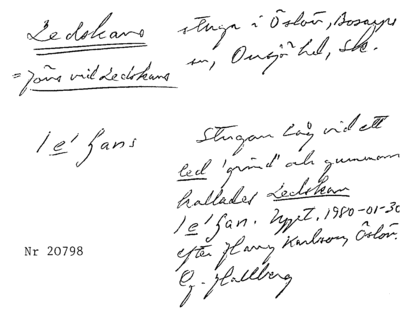 Ledskans stuga i Öslöv, Bosarps
= Jöns vid Ledskans sn, Onsjö hd, Sk.
le' hans Stugan låg vid ett
led 'grind' och gumman
kallades Ledskan
le' han. Uppt. 1980-01-30
efter Harry Karlsson, Öslöv.
G. Hallberg
Nr 20798